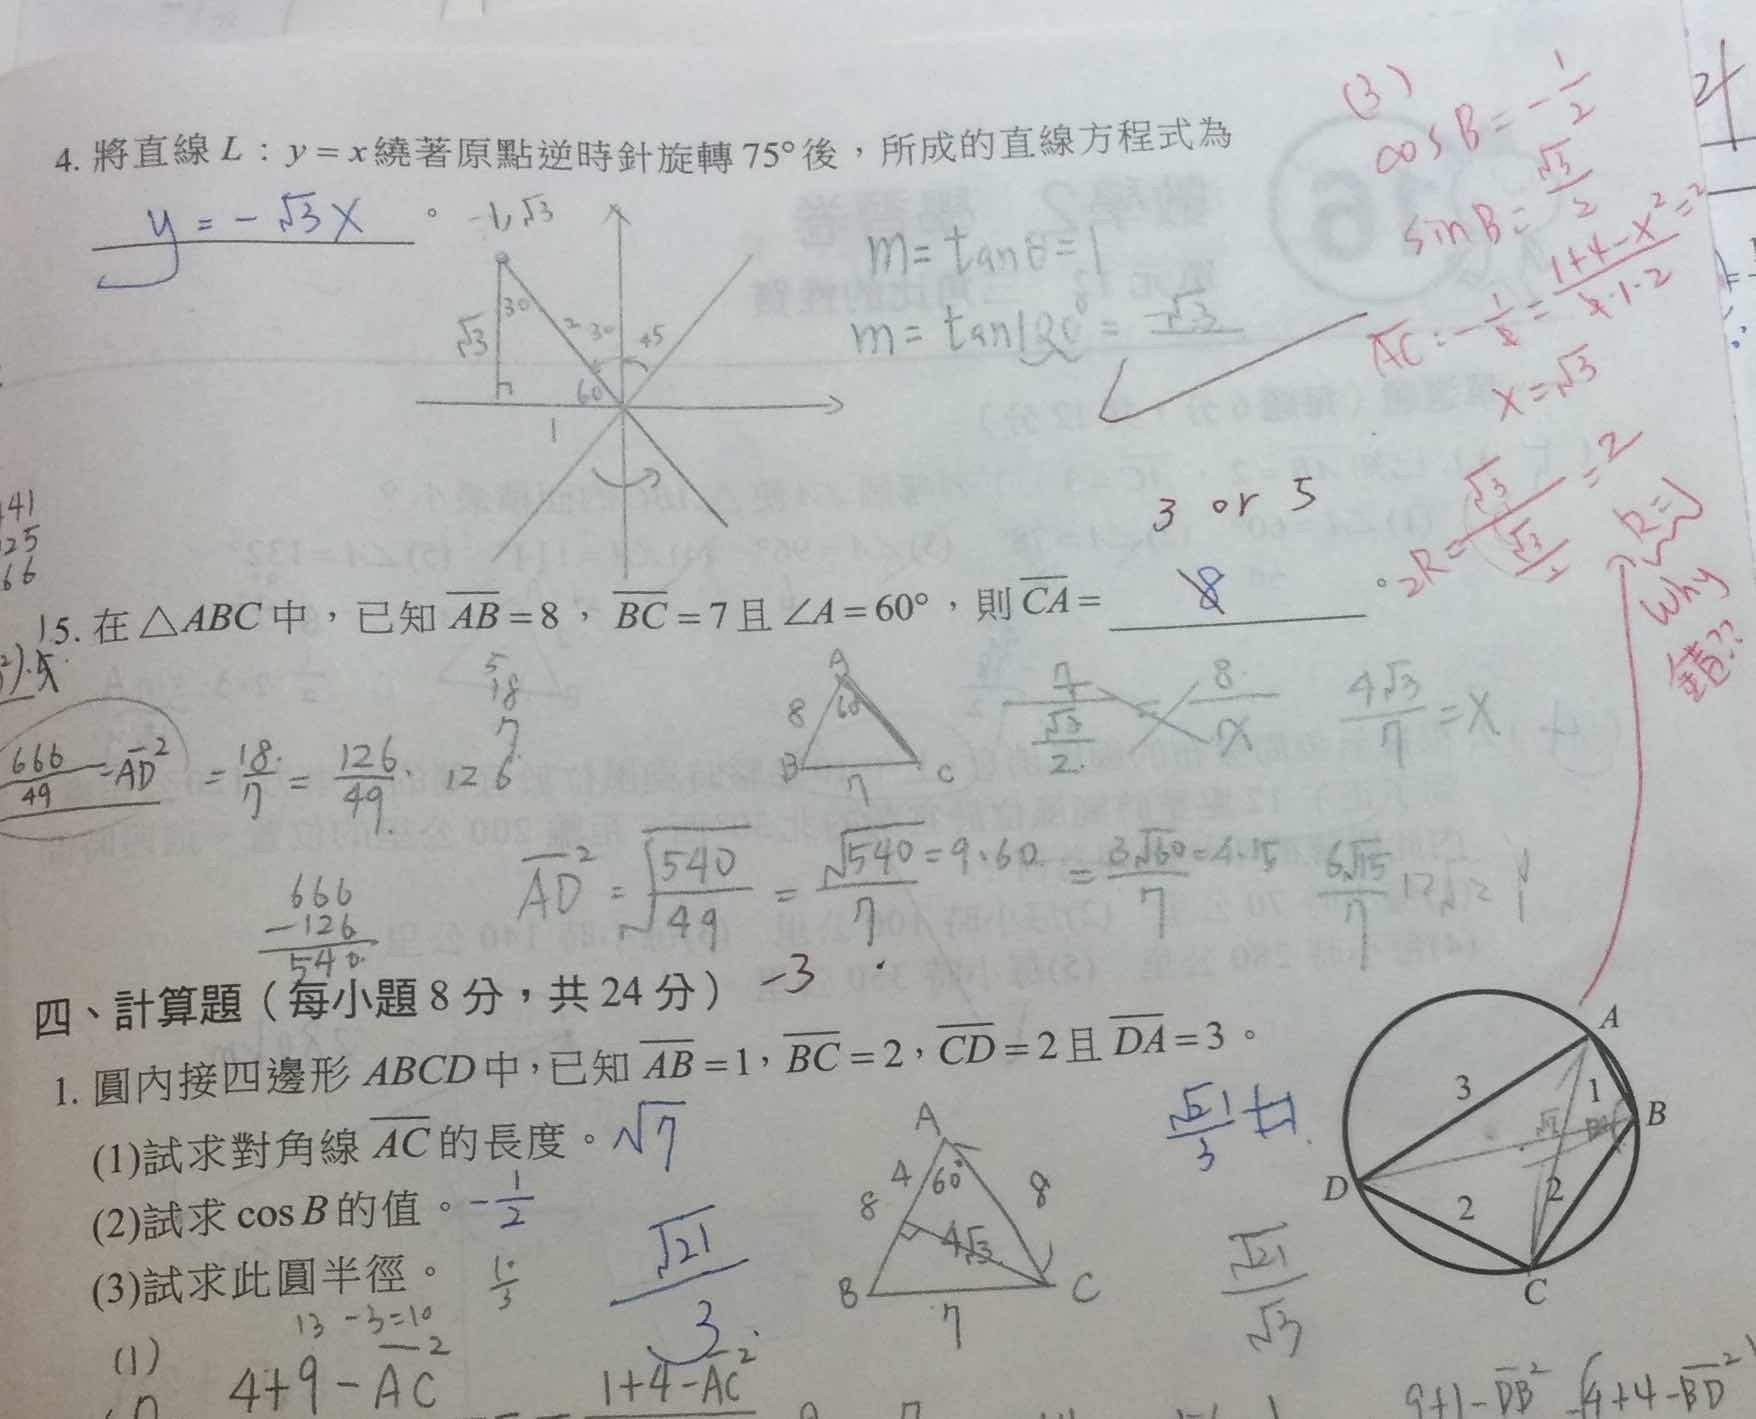 4. 將直線 L：y = x 繞著原點逆時針旋轉 75° 後，所成的直線方程式為
y = -√3 x 。
-1, √3
√3
30
2
30
45
60
1
m = tanθ = 1
m = tan120° = -√3
(3)
cos B = -1/2
sin B = √3/2
x = √3
= 2
R=1
Why
錯??
41
25
66
3 or 5
15. 在 △ABC 中，已知 AB = 8，BC = 7 且 ∠A = 60°，則 CA = 8 。
5
18
7
126
A
8
60
B
7
C
4√3/7 = X
666/49 = AD² = 18/7 = 126/49
666
-126
540
AD² = √(540/49) = √540/7 = 9·60 = 3√60/7 = 4·15 6√15/7
四、計算題（每小題 8 分，共 24 分） -3
1. 圓內接四邊形 ABCD 中，已知 AB = 1，BC = 2，CD = 2 且 DA = 3。
(1)試求對角線 AC 的長度。 √7
(2)試求 cos B 的值。 -1/2
(3)試求此圓半徑。
√21/3
A
4
8
60°
8
4√3
B
7
C
√21/3
√21/√3
A
3
1
B
D
2
2
C
13 -3=10
(1)
4+9-AC²
1+4-AC²
9+1-DB²
4+4-BD²